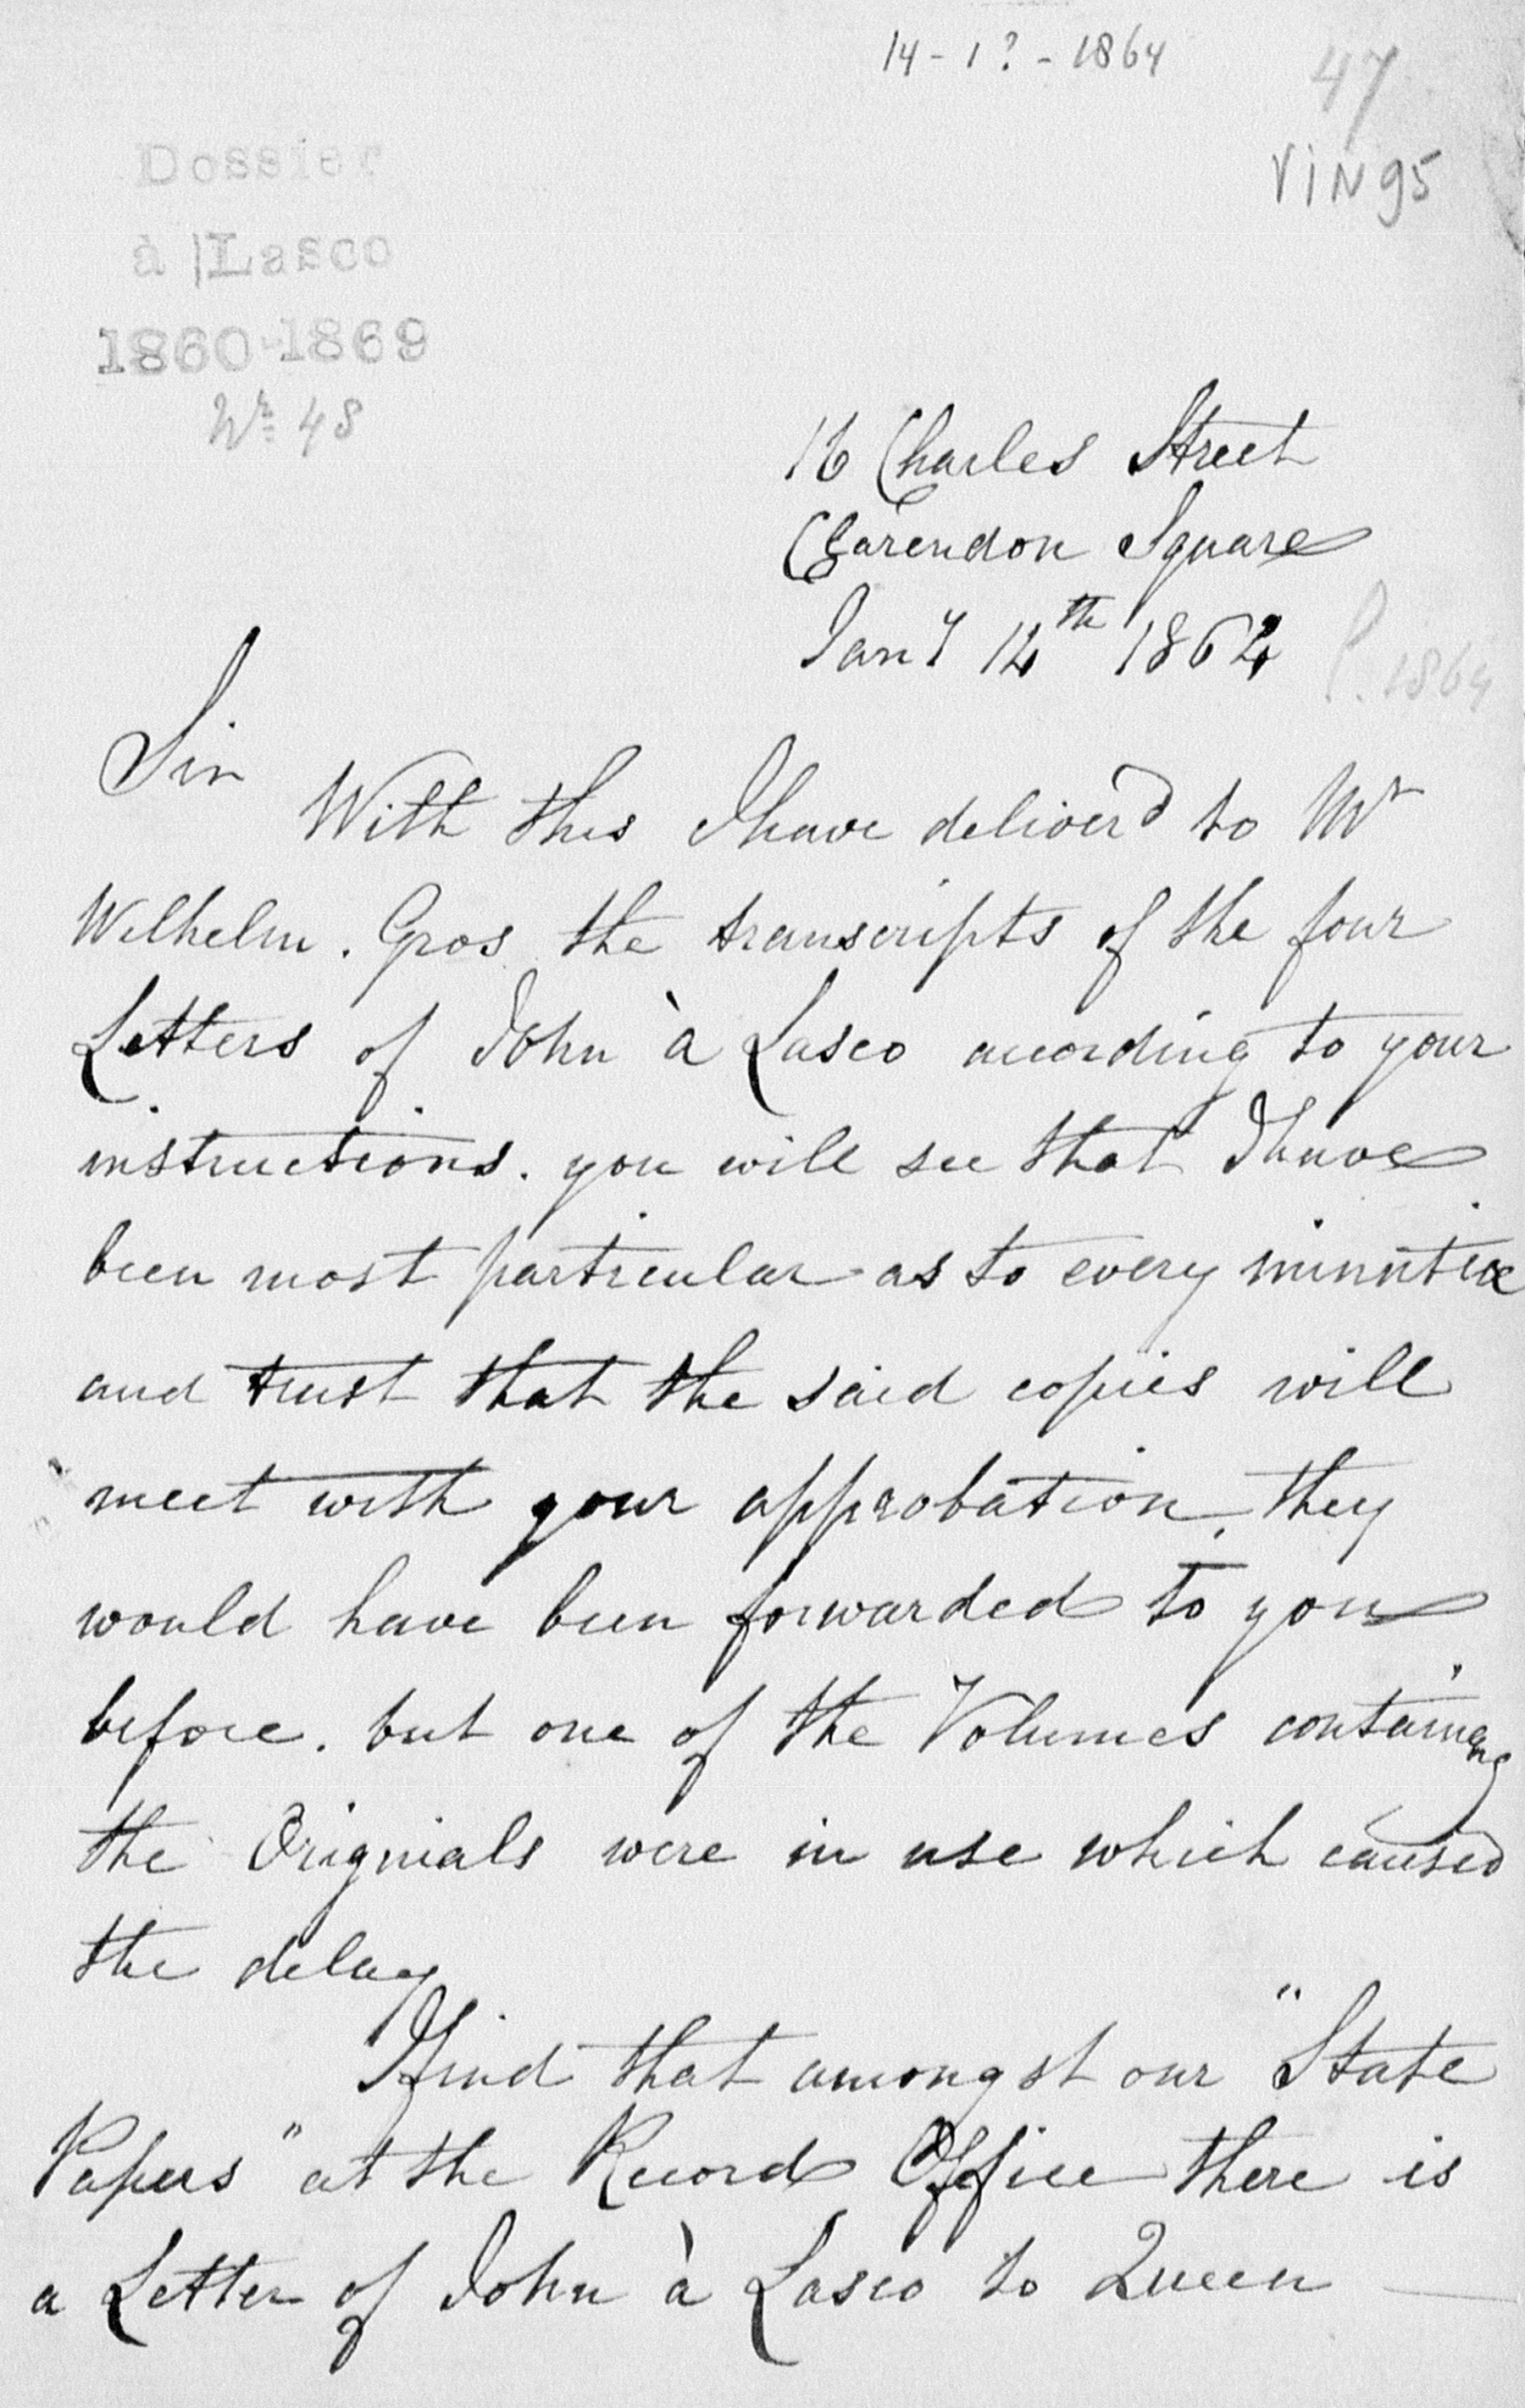 14-1?-1864
47
VING5
Dossier
à Lasco
1860-1869
Nr 48
16 Charles Street
Clarendon Square
Jany 14th 1864
P. 1864
Sir
With this I have deliver'd to Mr
Wilhelm. Gros the transcripts of the four
Letters of John à Lasco according to your
instructions. you will see that I have
been most particular as to every minutiæ
and trust that the said copies will
meet with your approbation, they
would have been forwarded to you
before. but one of the Volumes containing
the Originals were in use which caused
the delay
I find that amongst our "State
Papers" at the Record Office there is
a Letter of John à Lasco to Queen